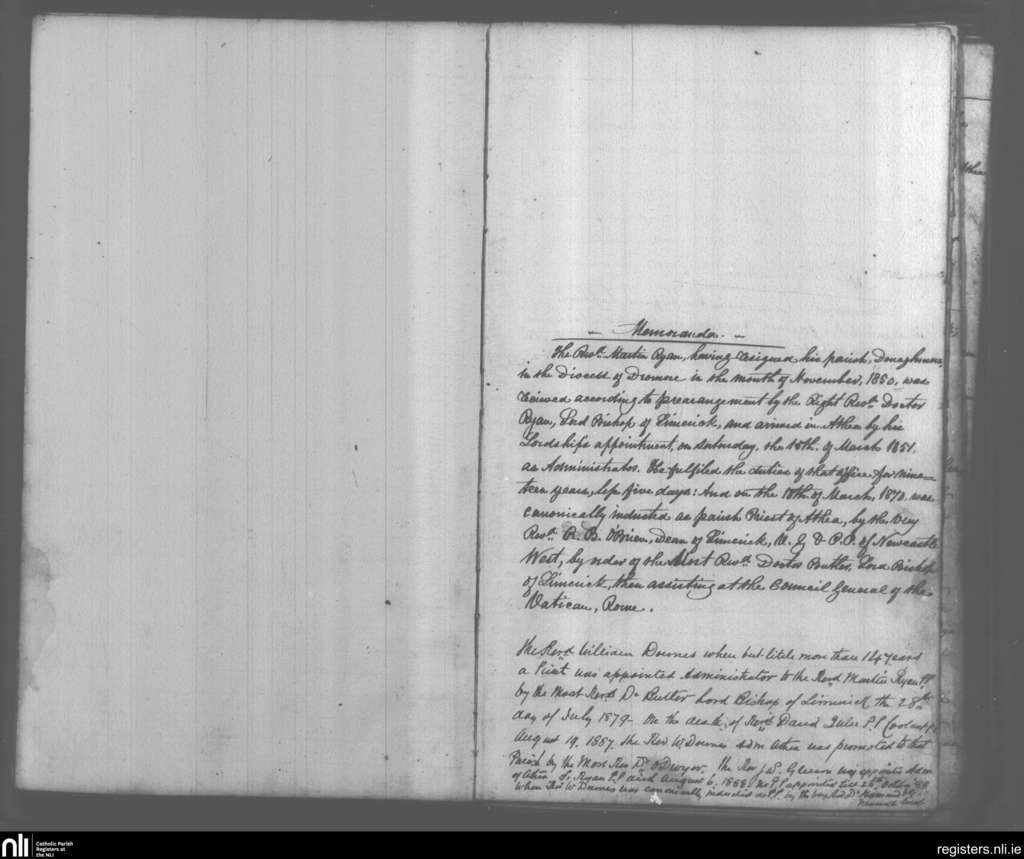 Memoranda.
The Revd. Martin Ryan, having resigned his parish, Donaghmore,
in the Diocess of Dromore in the month of November, 1850, was
received according to prearrangement by the Right Revd. Doctor
Ryan, Lord Bishop of Limerick, and arrived in Athea by his
Lordship's appointment, on Saturday, the 15th. of March 1851.
as Administrator. He fulfiled the duties of that office for nine-
teen years, less five days: And on the 10th of March, 1870, was
canonically inducted as parish Priest of Athea, by the Very
Revd. R. B. O'Brien, Dean of Limerick, V. G & P.P. of Newcastle
West, by order of the Most Revd. Doctor Butler, Lord Bishop
of Limerick, then assisting at the Council General of the
Vatican, Rome.
The Revd. William Downes when but little more than 14 years
a Priest was appointed Administrator to the Revd Martin Ryan PP
by the Most Revd Dr Butler Lord Bishop of Limerick the 28th
day of July 1879. On the death of Revd David P.P.
August 19, 1887, the Rev W Downes adm Athea was promoted to that
Parish by the Most Rev Dr O'Dwyer. The Rev J W. Gleeson was appointed Adm
of Athea. Fr Ryan P.P. died August 6. 1888. No P.P. appointed till 28th 88
when Rev W Downes was canonically inducted as P.P. by the Very Rev Dr
nli
Catholic Parish
Registers at
the NLI
registers.nli.ie